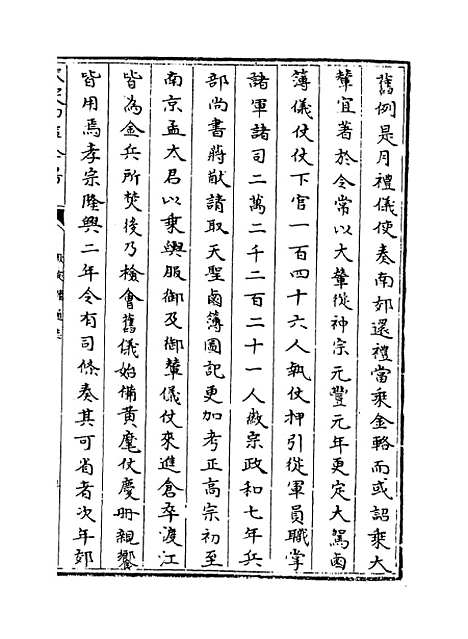 舊例是月禮儀使奏南郊還禮當乘金輅而或詔乘大
輦宜著於令常以大輦從神宗元豐元年更定大駕鹵
簿儀仗仗下官一百四十六人執仗押引從軍員職掌
諸軍諸司二萬二千二百二十一人徽宗政和七年兵
部尚書蔣猷請取天聖鹵簿圖記更加考正高宗初至
南京孟太君以乘輿服御及御輦儀仗來進倉卒渡江
皆為金兵所焚後乃檢會舊儀始備黃麾仗慶冊親饗
皆用焉孝宗隆興二年令有司條奏其可省者次年郊